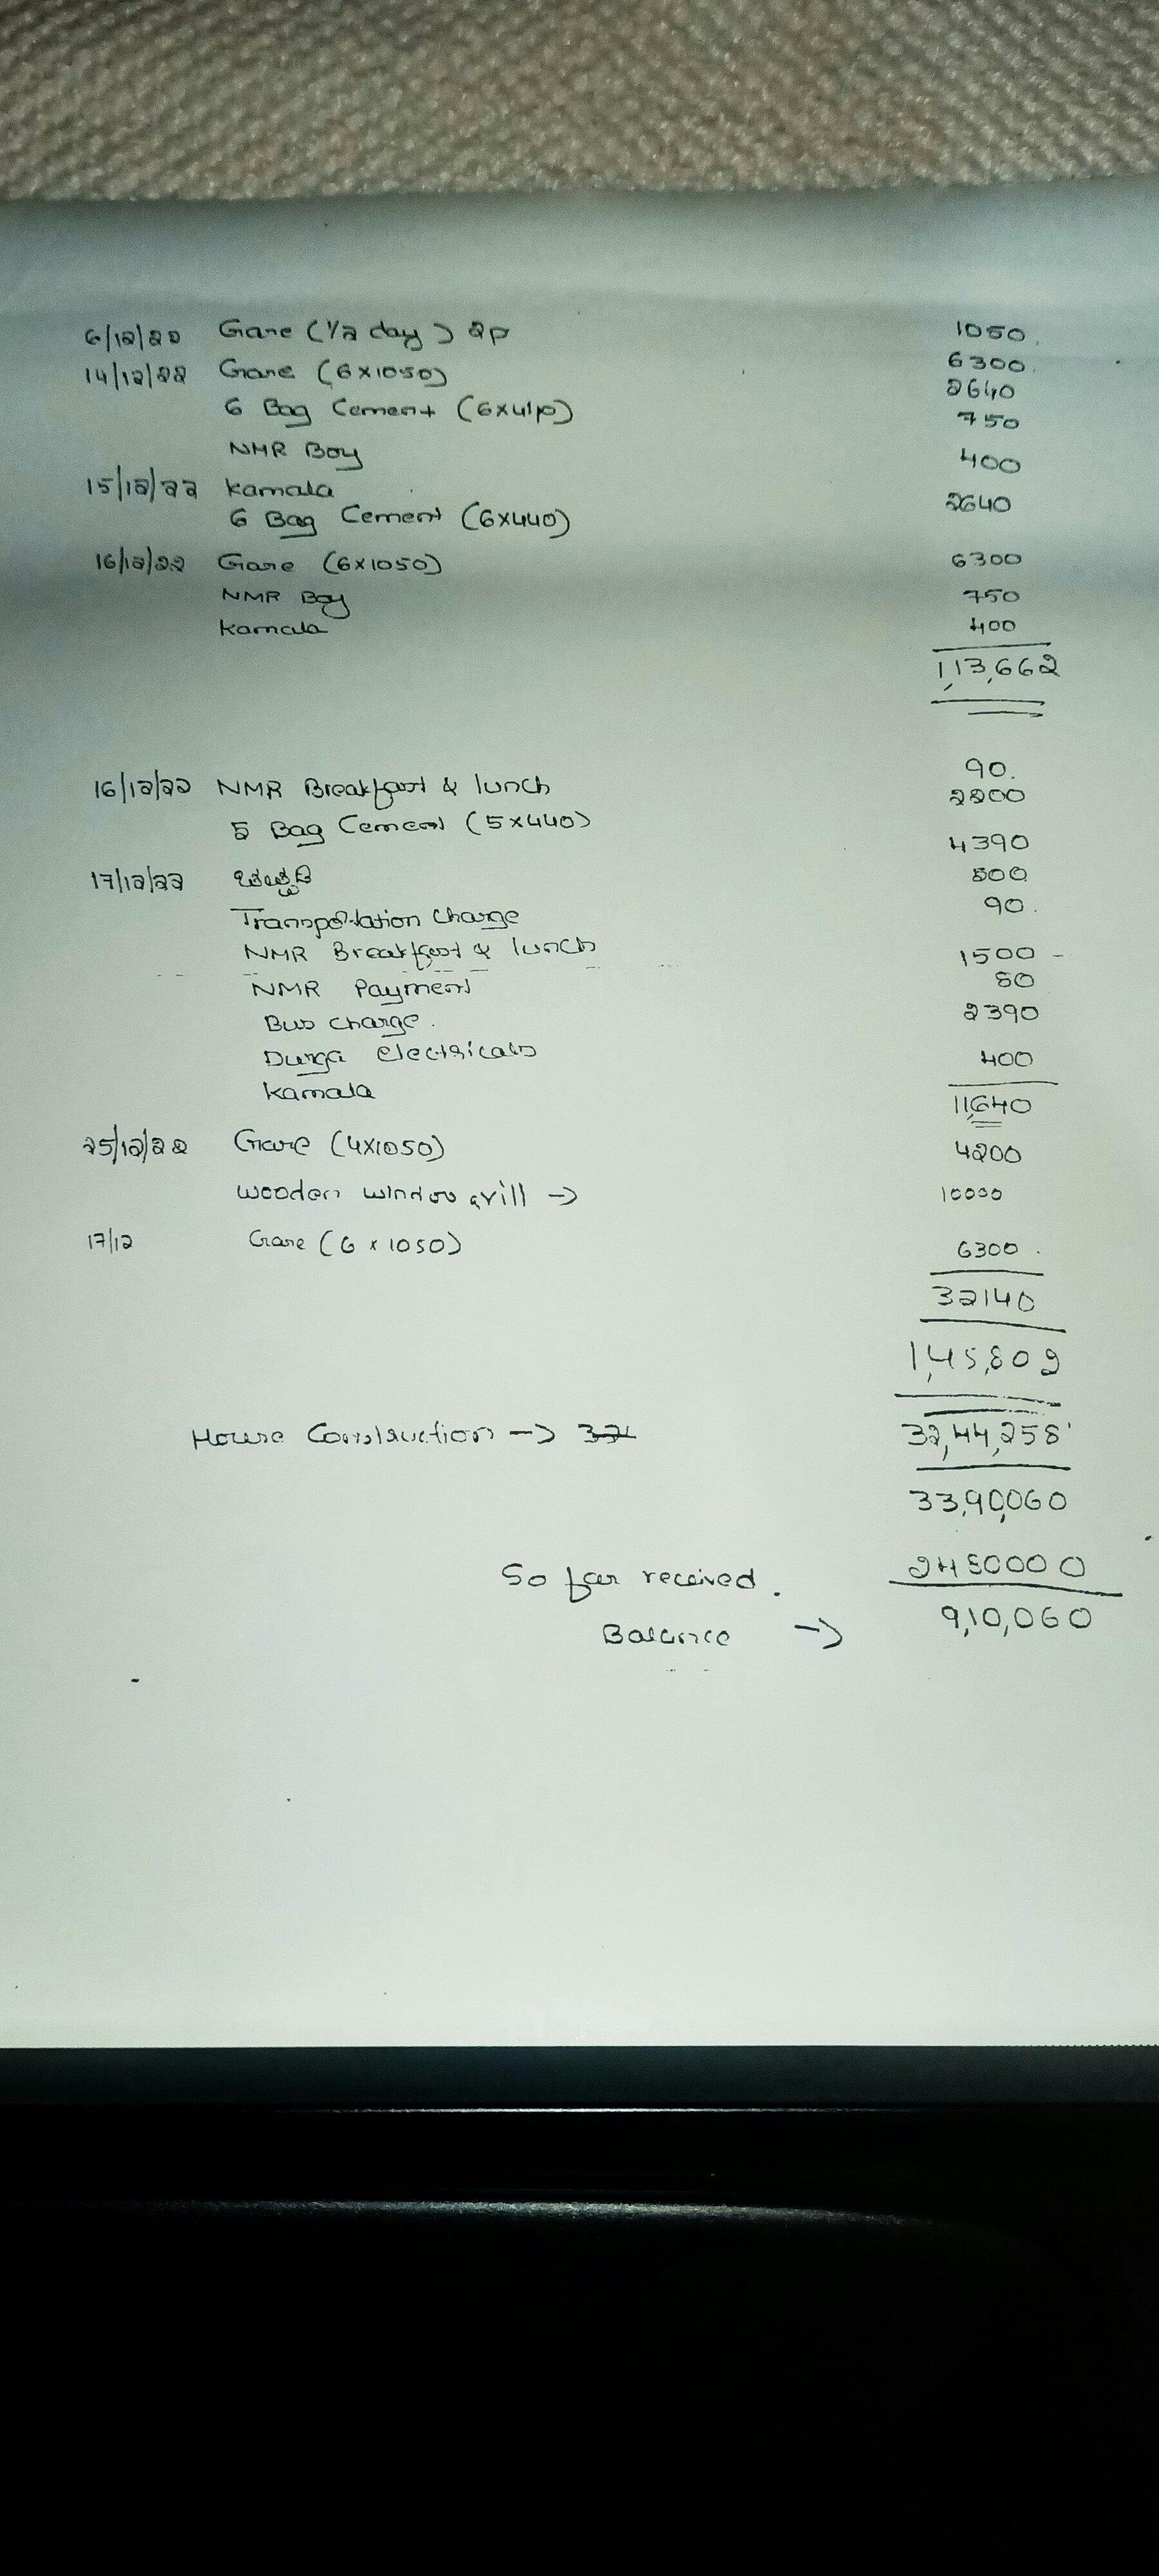 6/12/22 Gare (1/2 day) 2p 1050
14/12/22 Gare (6x1050) 6300
6 Bag Cement (6x440) 2640
NMR Boy 750
15/12/22 Kamala 400
6 Bag Cement (6x440) 2640
16/12/22 Gare (6x1050) 6300
NMR Boy 750
Kamala 400
1,13,662
16/12/22 NMR Breakfast & lunch 90
5 Bag Cement (5x440) 2200
17/12/22 4390
Transportation Charge 500
NMR Breakfast & lunch 90
NMR Payment 1500
Bus charge. 80
Durga electricals 2390
Kamala 400
11640
25/12/22 Gare (4x1050) 4200
wooden window grill -> 10000
17/12 Gare (6x1050) 6300
32140
1,45,802
House Construction -> 32,44,258
33,90,060
So far received. 2480000
Balance -> 9,10,060